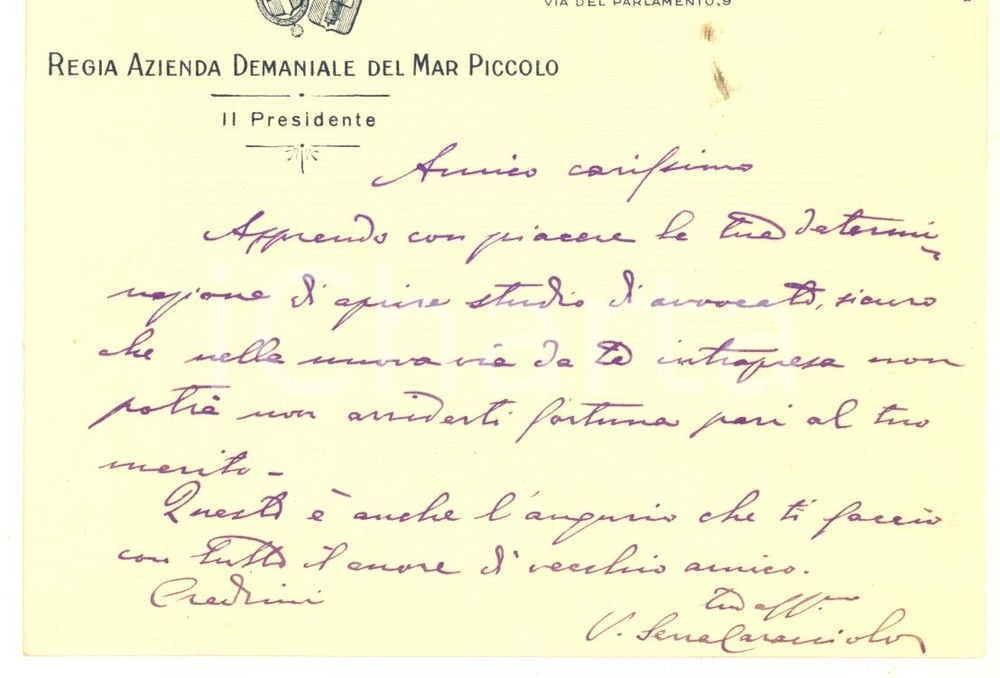 VIA DEL PARLAMENTO, 9
REGIA AZIENDA DEMANIALE DEL MAR PICCOLO
Il Presidente
Amico carissimo
Apprendo con piacere la tua determi
nazione di aprire studio di avvocato, sicuro
che nella nuova via da te intrapresa non
potrà non arriderti fortuna pari al tuo
merito -
Questo è anche l'augurio che ti faccio
con tutto il cuore di vecchio amico.
Credimi
tuo aff.mo
V. Serra Caracciolo
iCharta